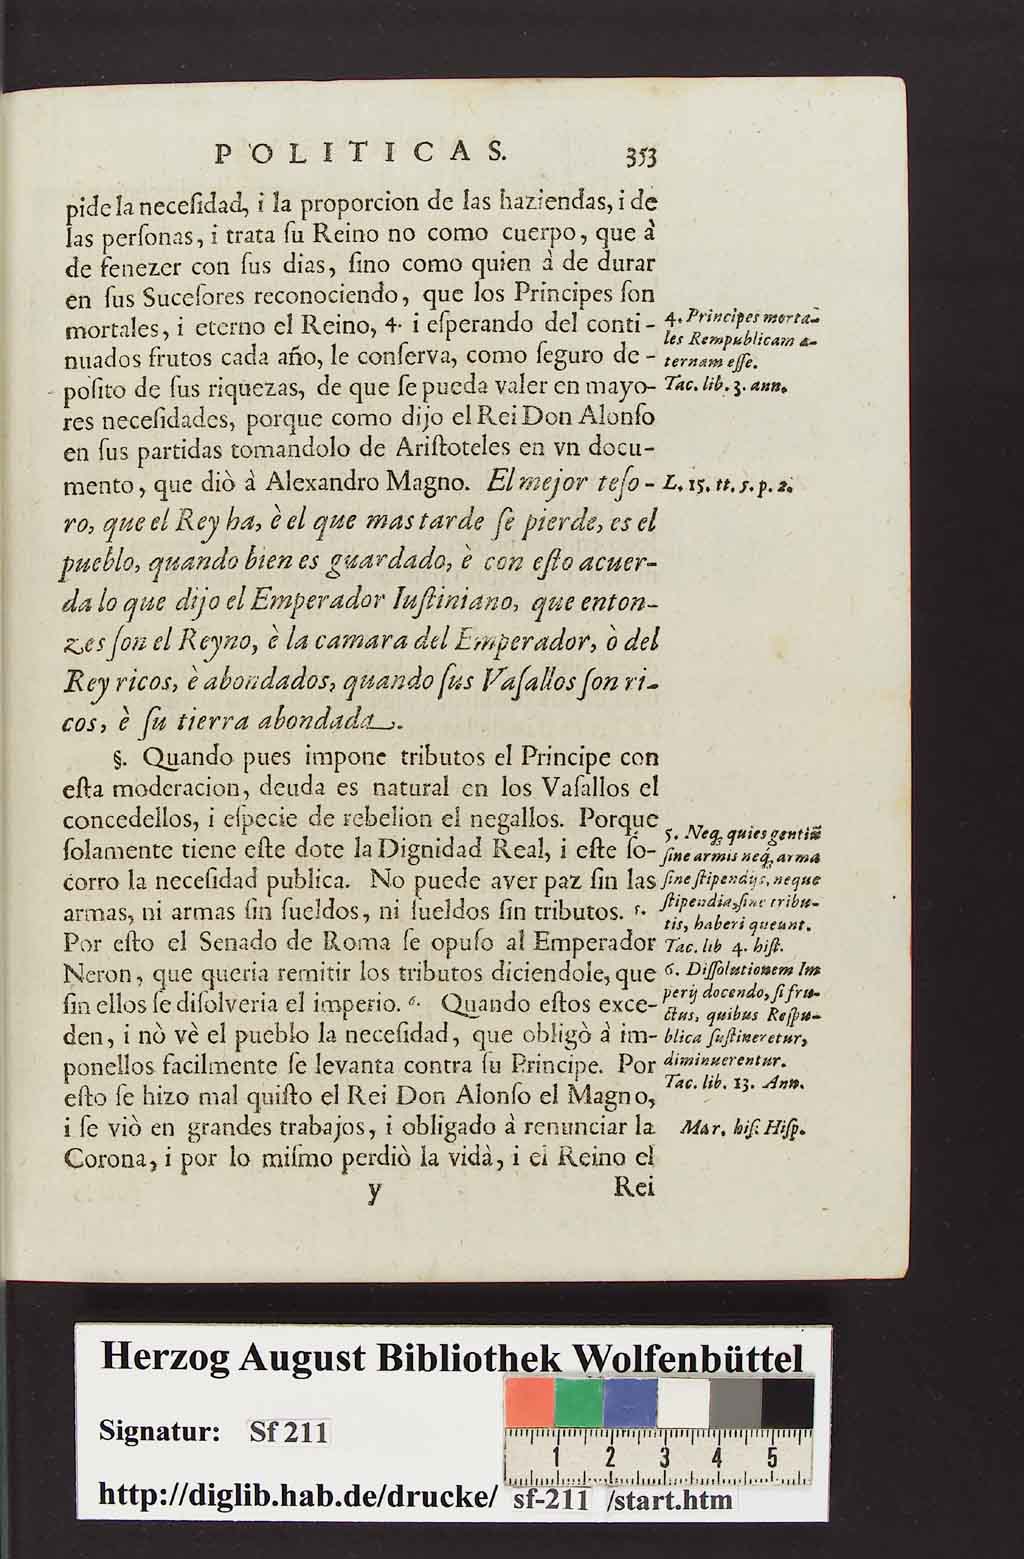 POLITICAS. 353
pide la necesidad, i la proporcion de las haziendas, i de
las perſonas, i trata ſu Reino no como cuerpo, que à
de fenezer con ſus dias, ſino como quien à de durar
en ſus Suceſores reconociendo, que los Principes ſon
mortales, i eterno el Reino, 4. i eſperando del conti-
nuados frutos cada año, le conſerva, como ſeguro de-
poſito de ſus riquezas, de que ſe pueda valer en mayo-
res neceſidades, porque como dijo el Rei Don Alonſo
en ſus partidas tomandolo de Ariſtoteles en vn docu-
mento, que diò à Alexandro Magno. El mejor teſo-
ro, que el Rey ha, è el que mas tarde ſe pierde, es el
pueblo, quando bien es guardado, è con eſto acuer-
da lo que dijo el Emperador Iuſtiniano, que enton-
zes ſon el Reyno, è la camara del Emperador, ò del
Rey ricos, è abondados, quando ſus Vaſallos ſon ri-
cos, è ſu tierra abondada.
§. Quando pues impone tributos el Principe con
eſta moderacion, deuda es natural en los Vaſallos el
concedellos, i eſpecie de rebelion el negallos. Porque
ſolamente tiene eſte dote la Dignidad Real, i eſte ſo-
corro la neceſidad publica. No puede aver paz ſin las
armas, ni armas ſin ſueldos, ni ſueldos ſin tributos. 5.
Por eſto el Senado de Roma ſe opuſo al Emperador
Neron, que queria remitir los tributos diciendole, que
ſin ellos ſe diſolveria el imperio. 6. Quando eſtos exce-
den, i nò vè el pueblo la neceſidad, que obligò à im-
ponellos facilmente ſe levanta contra ſu Principe. Por
eſto ſe hizo mal quiſto el Rei Don Alonſo el Magno,
i ſe viò en grandes trabajos, i obligado à renunciar la
Corona, i por lo miſmo perdiò la vidà, i el Reino el
y Rei
4. Principes morta-
les Rempublicam æ-
ternam eſſe.
Tac. lib. 3. ann.
L. 15. tt. 5. p. 2.
5. Neq; quies gentiũ
ſine armis neq; arma
ſine ſtipendijs, neque
ſtipendia, ſine tribu-
tis, haberi queunt.
Tac. lib 4. hiſt.
6. Diſſolutionem Im
perij docendo, ſi fru-
ctus, quibus Reſpu-
blica ſuſtineretur,
diminuerentur.
Tac. lib. 13. Ann.
Mar. hiſ. Hiſp.
Herzog August Bibliothek Wolfenbüttel
Signatur: Sf 211
1 2 3 4 5
http://diglib.hab.de/drucke/ sf-211 /start.htm